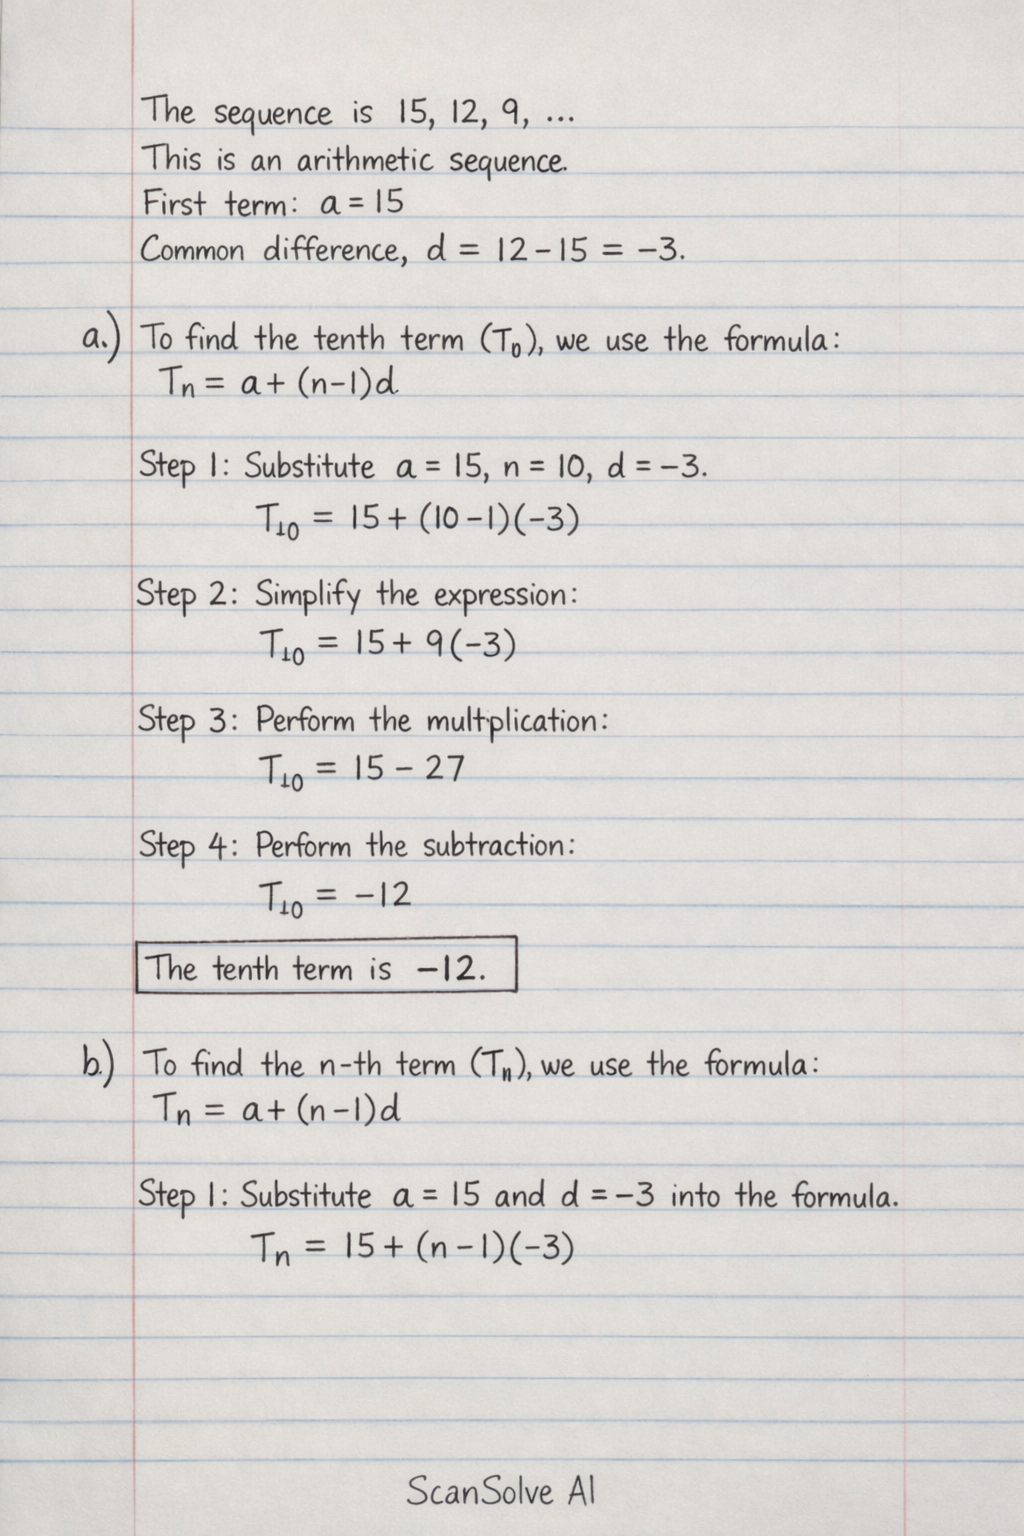 The sequence is 15, 12, 9, ...
This is an arithmetic sequence.
First term: a = 15
Common difference, d = 12 - 15 = -3.
a.) To find the tenth term (T₀), we use the formula:
Tn = a + (n-1)d
Step 1: Substitute a = 15, n = 10, d = -3.
T₁₀ = 15 + (10-1)(-3)
Step 2: Simplify the expression:
T₁₀ = 15 + 9(-3)
Step 3: Perform the multplication:
T₁₀ = 15 - 27
Step 4: Perform the subtraction:
T₁₀ = -12
The tenth term is -12.
b.) To find the n-th term (Tn), we use the formula:
Tn = a + (n-1)d
Step 1: Substitute a = 15 and d = -3 into the formula.
Tn = 15 + (n-1)(-3)
ScanSolve AI